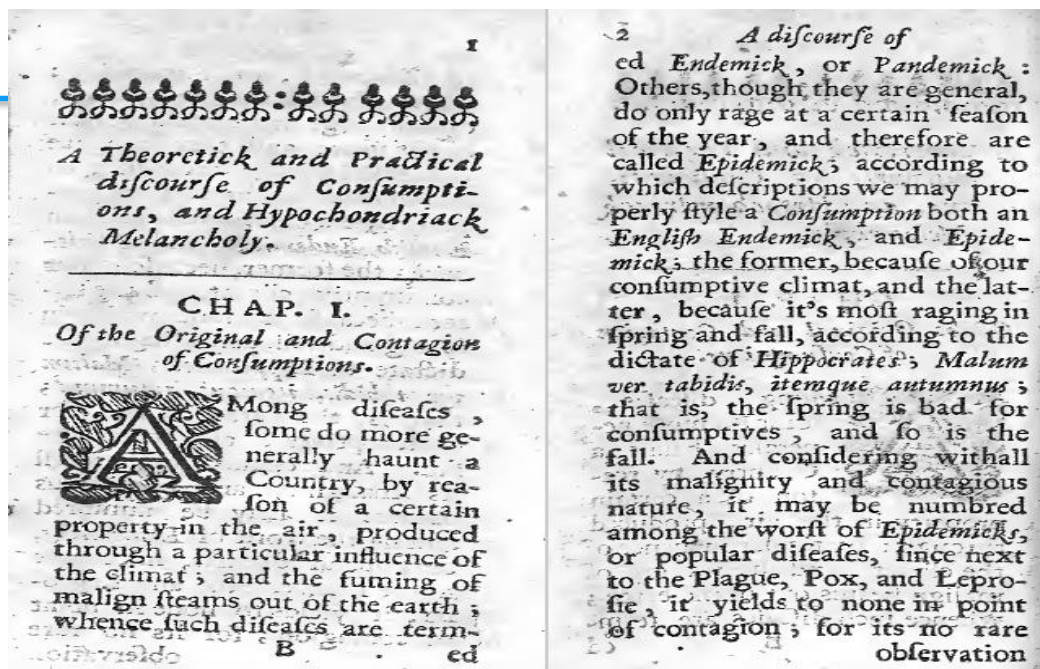 1
A Theoretick and Practical
diſcourſe of Conſumpti-
ons, and Hypochondriack
Melancholy.
CHAP. I.
Of the Original and Contagion
of Conſumptions.
AMong diſeaſes,
ſome do more ge-
nerally haunt a
Country, by rea-
ſon of a certain
property in the air, produced
through a particular influence of
the climat; and the fuming of
malign ſteams out of the earth;
whence ſuch diſeaſes are term-
B ed
2 A diſcourſe of
ed Endemick, or Pandemick:
Others, though they are general,
do only rage at a certain ſeaſon
of the year, and therefore are
called Epidemick; according to
which deſcriptions we may pro-
perly ſtyle a Conſumption both an
Engliſh Endemick, and Epide-
mick; the former, becauſe of our
conſumptive climat, and the lat-
ter, becauſe it's moſt raging in
ſpring and fall, according to the
dictate of Hippocrates; Malum
ver tabidis, itemque autumnus;
that is, the ſpring is bad for
conſumptives, and ſo is the
fall. And conſidering withall
its malignity and contagious
nature, it may be numbred
among the worſt of Epidemicks,
or popular diſeaſes, ſince next
to the Plague, Pox, and Lepro-
ſie, it yields to none in point
of contagion; for its no rare
obſervation